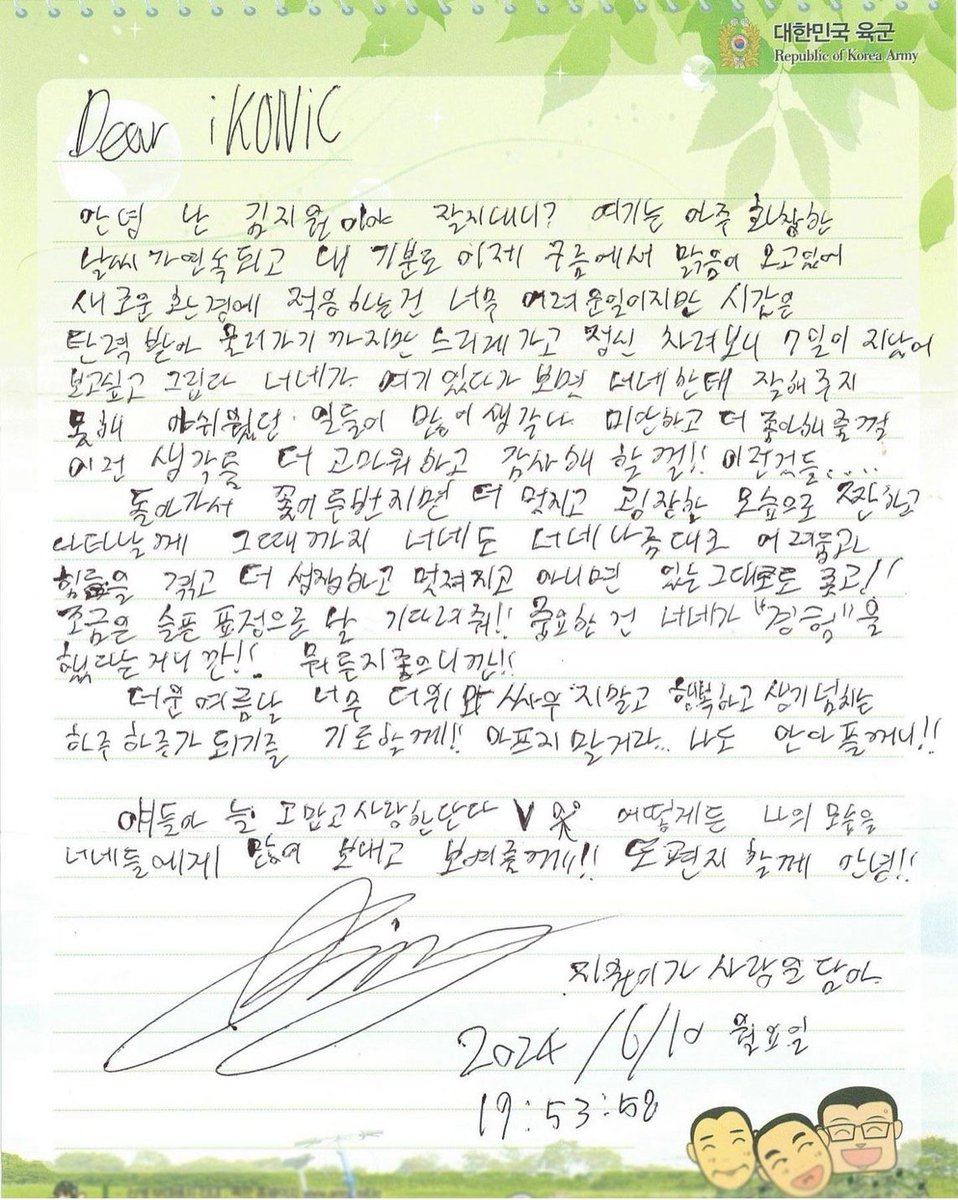 대한민국 육군
Republic of Korea Army
Dear iKONIC
안녕 난 김지원이야 잘지내니? 여기는 아주 화창한
날씨가연속되고 내 기분도 이제 구름에서 맑음이 오고있어
새로운 환경에 적응하는건 너무 어려운일이지만 시간은
탄력 받아 굴러가기 까지만 느리게가고 정신 차려보니 7일이 지났어
보고싶고 그립다 너네가 여기 있다가 보면 너네한테 잘해주지
못해 아쉬웠던 일들이 많이 생각나 미안하고 더 좋아해줄껄
이런 생각들 더 고마워하고 감사해 할껄!! 이런것들.....
돌아가서 꽃이 두번지면 더 멋지고 굉장한 모습으로 짠하고
나타날게 그때까지 너네도 너네나름대로 어려움과
힘듦을 겪고 더 성장하고 멋져지고 아니면 있는그대로도 좋고!!
조금은 슬픈 표정으로 날 기다려줘!! 중요한 건 너네가 "경험"을
했다는거니깐!! 뭐든지좋으니깐!!
더운여름날 너무 더위와 싸우지말고 행복하고 생기넘치는
하루하루가 되기를 기도할게!! 아프지말거라... 나도 안아플꺼니!!
얘들아 늘 고맙고사랑한단다 V 어떻게든 나의 모습을
너네들에게 많이 보내고 보여줄께!! 또편지할께 안녕!!
지원이가 사랑을담아
2024/6/10 월요일
19:53:58